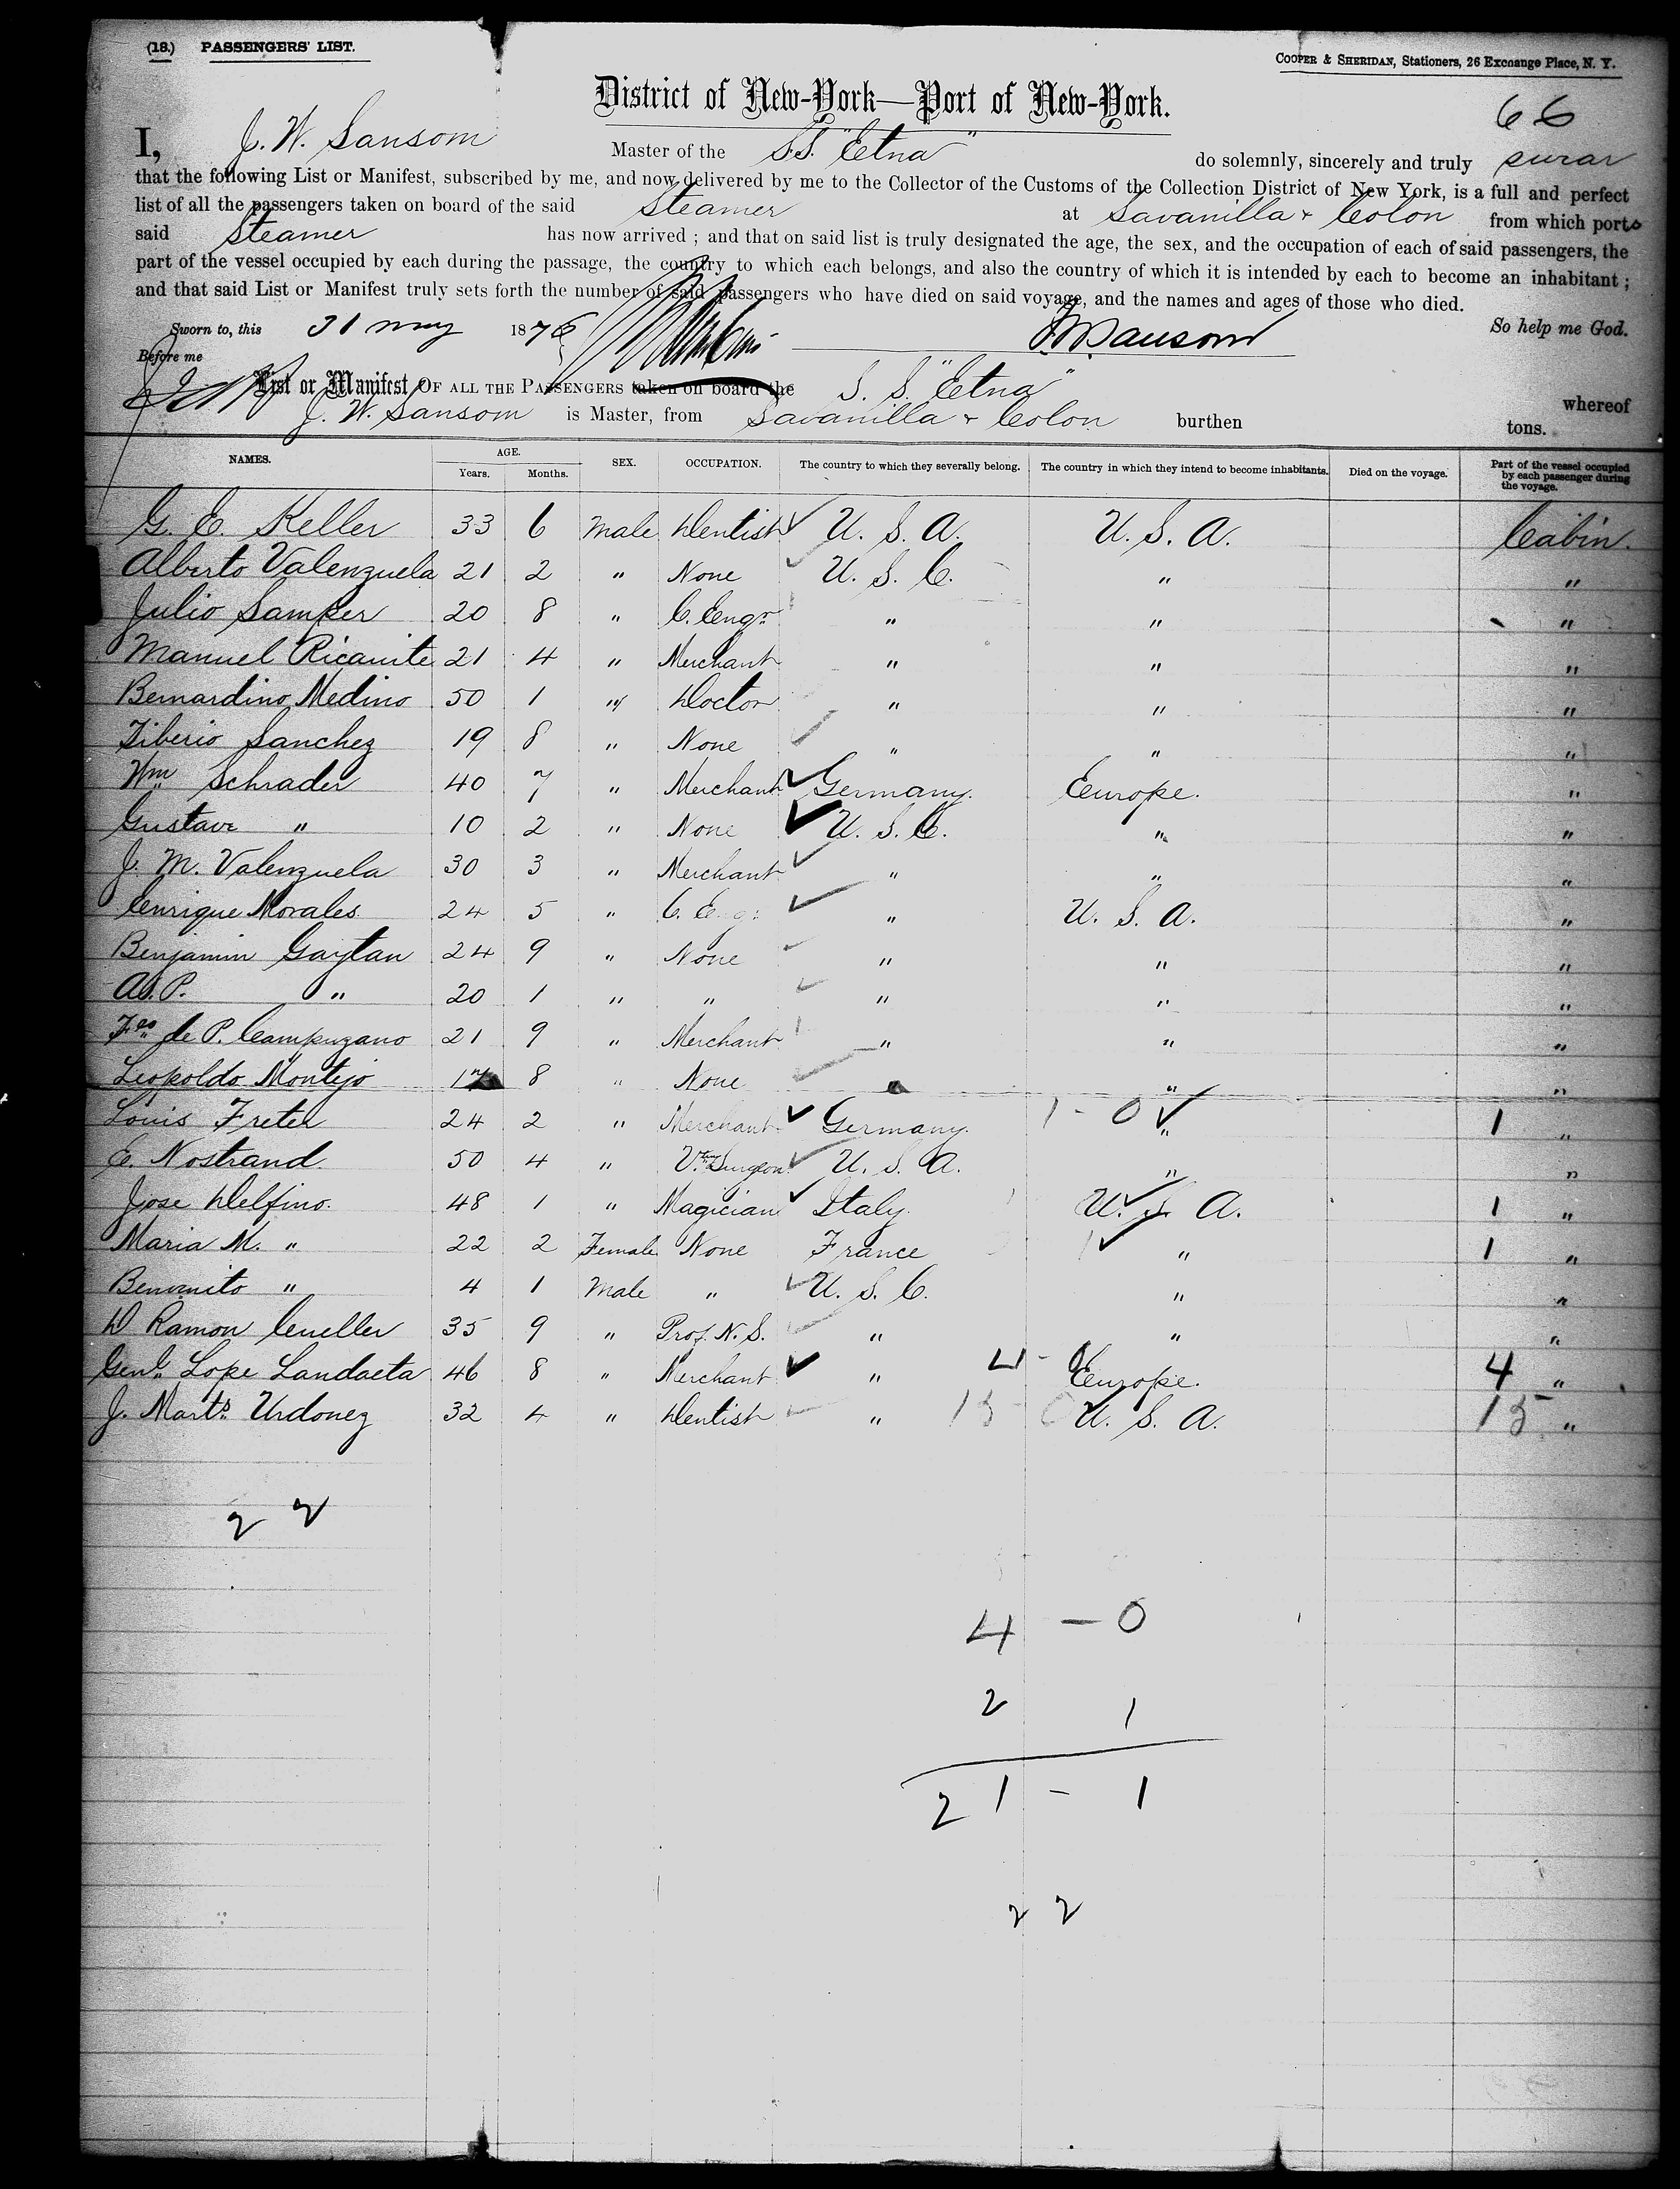 (18.) PASSENGERS' LIST.
COOPER & SHERIDAN, Stationers, 26 Exchange Place, N. Y.
District of New-York—Port of New-York.
66
I, J. W. Sansom Master of the S.S. "Etna" do solemnly, sincerely and truly swear
that the following List or Manifest, subscribed by me, and now delivered by me to the Collector of the Customs of the Collection District of New York, is a full and perfect
list of all the passengers taken on board of the said Steamer at Savanilla & Colon from which ports
said Steamer has now arrived ; and that on said list is truly designated the age, the sex, and the occupation of each of said passengers, the
part of the vessel occupied by each during the passage, the country to which each belongs, and also the country of which it is intended by each to become an inhabitant ;
and that said List or Manifest truly sets forth the number of said passengers who have died on said voyage, and the names and ages of those who died.
Sworn to, this 31 may 1876 J W Sansom So help me God.
Before me
List or Manifest OF ALL THE PASSENGERS taken on board the S. S. "Etna" whereof
J. W. Sansom is Master, from Savanilla & Colon burthen tons.
NAMES. AGE. Years. Months. SEX. OCCUPATION. The country to which they severally belong. The country in which they intend to become inhabitants. Died on the voyage. Part of the vessel occupied by each passenger during the voyage.
G. E. Keller 33 6 Male Dentist U. S. A. U. S. A. Cabin.
Alberto Valenzuela 21 2 " None U. S. C. " "
Julio Samper 20 8 " C. Engr. " " "
Manuel Ricaurte 21 4 " Merchant " " "
Bernardino Medino 50 1 " Doctor " " "
Tiberio Sanchez 19 8 " None " " "
Wm Schrader 40 7 " Merchant Germany. Europe. "
Gustave " 10 2 " None U. S. C. " "
J. M. Valenzuela 30 3 " Merchant " " "
Enrique Morales 24 5 " C. Eng. " U. S. A. "
Benjamin Gaytan 24 9 " None " " "
A. P. " 20 1 " " " " "
Fco. de P. Campuzano 21 9 " Merchant " " "
Leopoldo Montejo 17 8 " None " " "
Louis Fretel 24 2 " Merchant Germany. 1 - 0 " 1 "
E. Nostrand 50 4 " Vtry Surgeon U. S. A. " "
Jose Delfino. 48 1 " Magician Italy. U. S. A. 1 "
Maria M. " 22 2 Female None France 1 " 1 "
Benvenito " 4 1 Male " U. S. C. " "
D Ramon Cueller 35 9 " Prof. N. S. " " "
Genl. Lope Landaeta 46 8 " Merchant " 4 - 0 Europe. 4 "
J. Marts. Urdonez 32 4 " Dentist " 15 0 U. S. A. 15 "
22
4 - 0
2 1
21 - 1
22